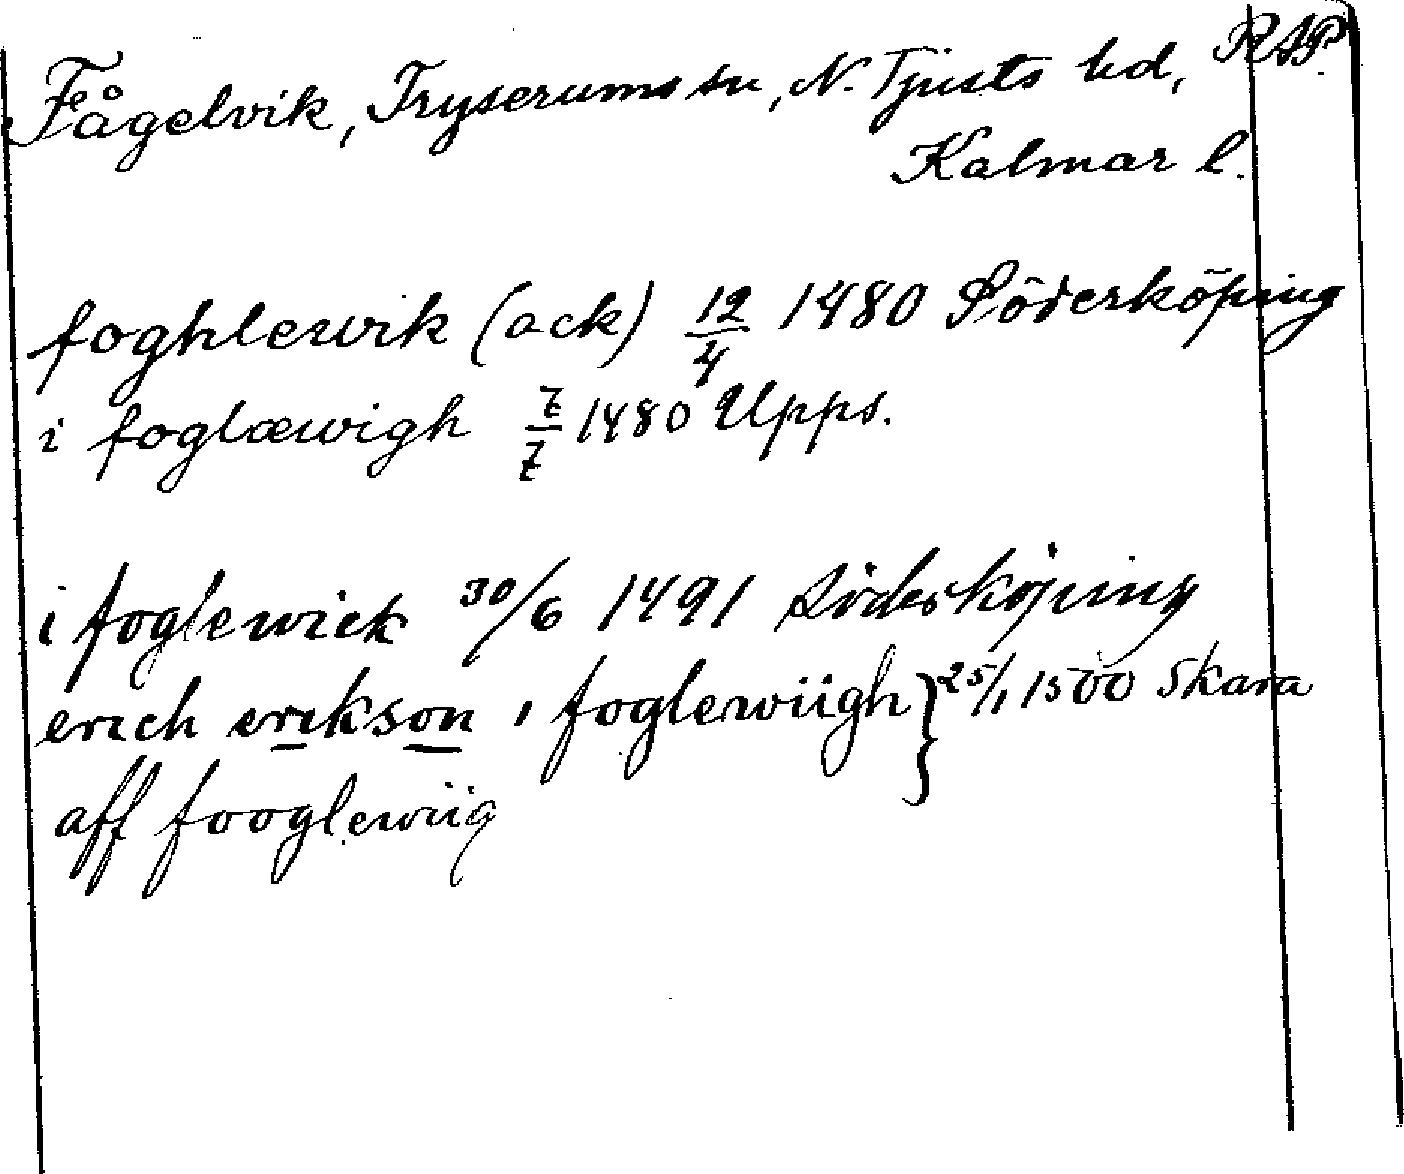 Fågelvik, Tryserums sn, N. Tjusts hd, RAP.
Kalmar l.
foghlewik (ack) 12/4 1480 Söderköping
i foglæwigh 7/7 1480 Upps.
i foglewick 30/6 1491 Söderköping
erich erikson i foglewiigh } 25/1 1500 Skara
aff fooglewiig